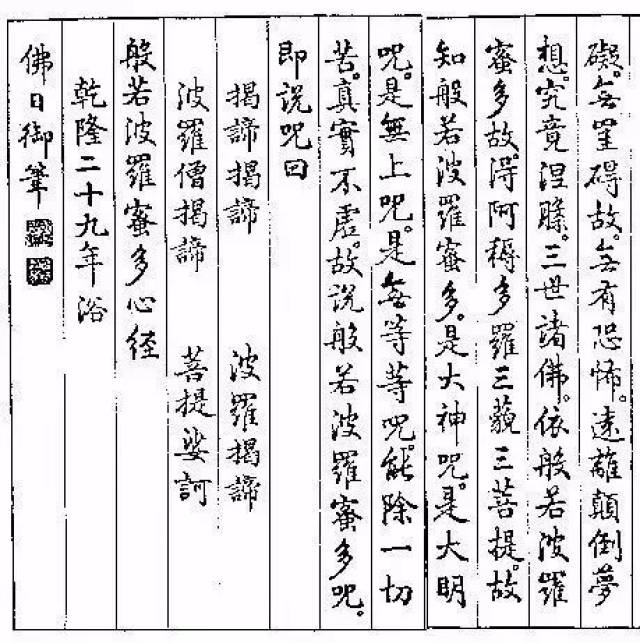 礙。無罣碍故。無有恐怖。遠離顛倒夢
想。究竟涅槃。三世諸佛。依般若波羅
蜜多故。得阿耨多羅三藐三菩提。故
知般若波羅蜜多。是大神咒。是大明
咒。是無上咒。是無等等咒。能除一切
苦。真實不虛。故説般若波羅蜜多咒。
即説咒曰
揭諦揭諦 波羅揭諦
波羅僧揭諦 菩提娑訶
般若波羅蜜多心経
乾隆二十九年浴
佛日御筆